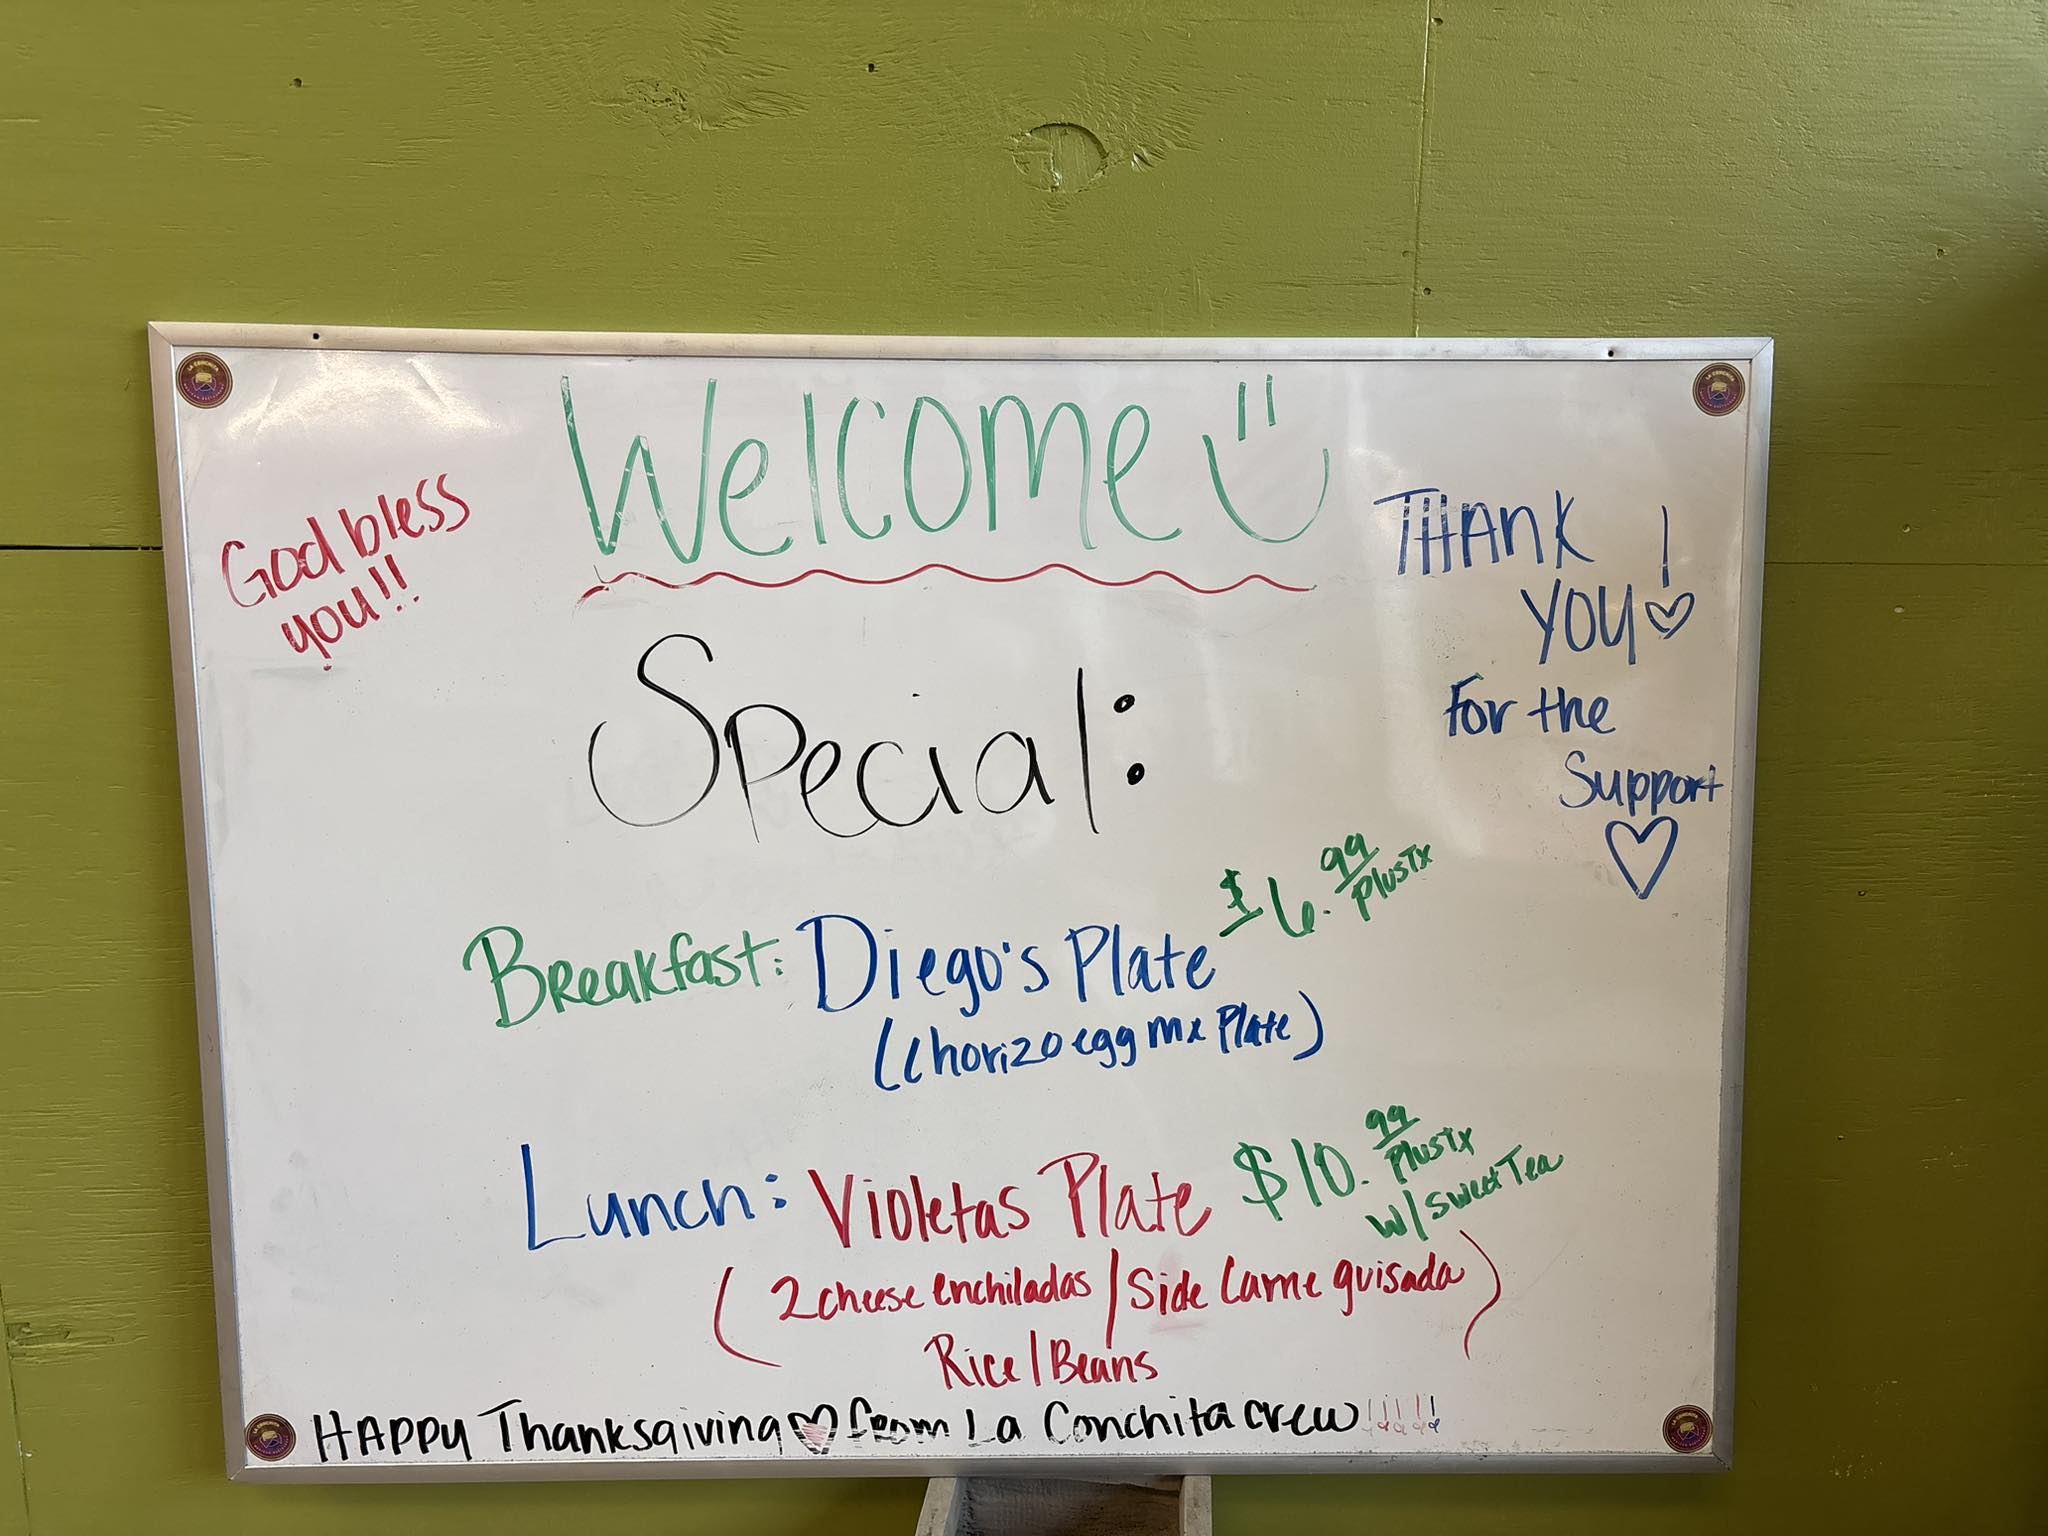 Welcome
God bless
you!!
THANK
YOU!
For the
Support
Special:
$6.99
plus Tx
Breakfast: Diego's Plate
(Chorizo egg mx Plate)
Lunch: Violetas Plate $10.99
Plus Tx
w/ sweet Tea
(2 cheese enchiladas / Side Carne guisada)
Rice / Beans
HAPPY Thanksgiving from La Conchita crew!!!!!
LA CONCHITA
LA CONCHITA
LA CONCHITA
LA CONCHITA